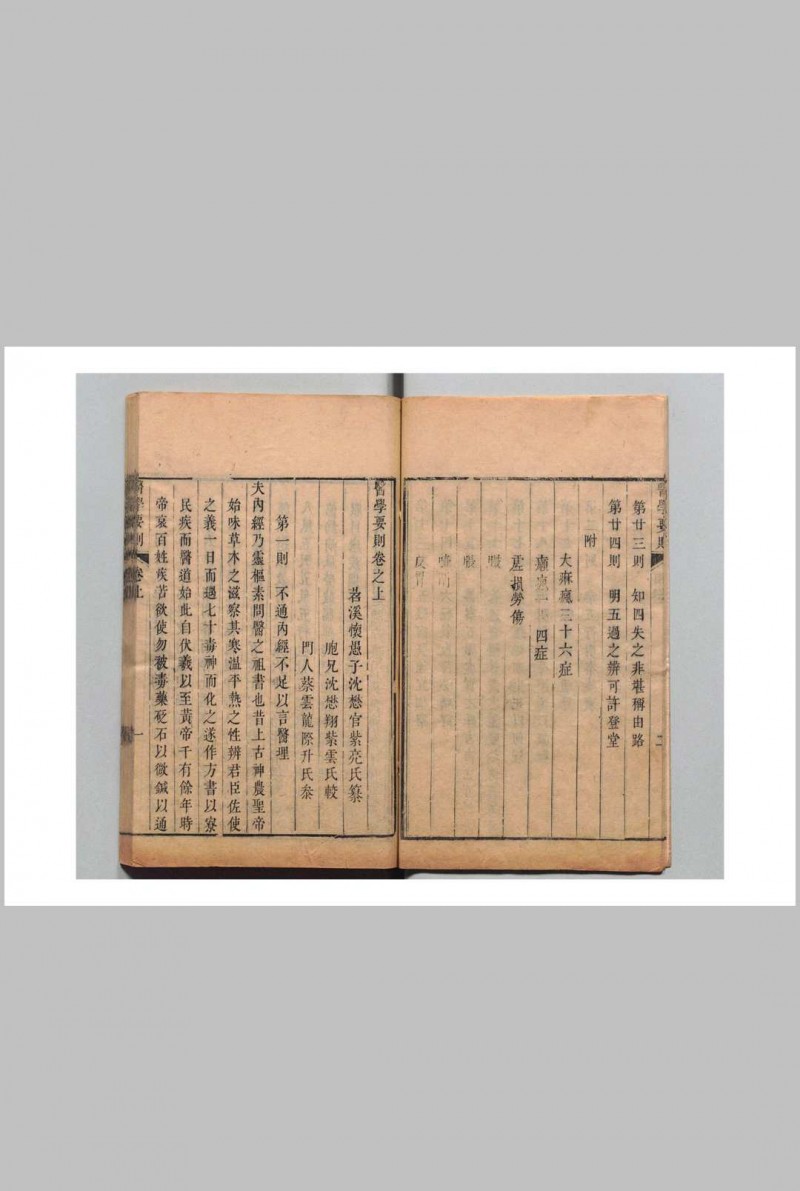 醫學要則
二
第廿三則　知四失之非堪稱由路
第廿四則　明五過之辨可許登堂
附
大麻瘋三十六症
四症
虛損勞傷
醫學要則卷之上
苕溪懷愚子沈懋官紫亮氏纂
胞兄沈懋翔紫雲氏較
門人蔡雲龍際升氏叅
第一則　不通內經不足以言醫理
夫內經乃靈樞素問醫之祖書也昔上古神農聖帝
始味草木之滋察其寒溫平熱之性辨君臣佐使
之義一日而遇七十毒神而化之遂作方書以寮
民疾而醫道始此自伏羲以至黃帝千有餘年時
帝哀百姓疾苦欲使勿被毒藥砭石以微鍼以通
醫學要則
卷上
一